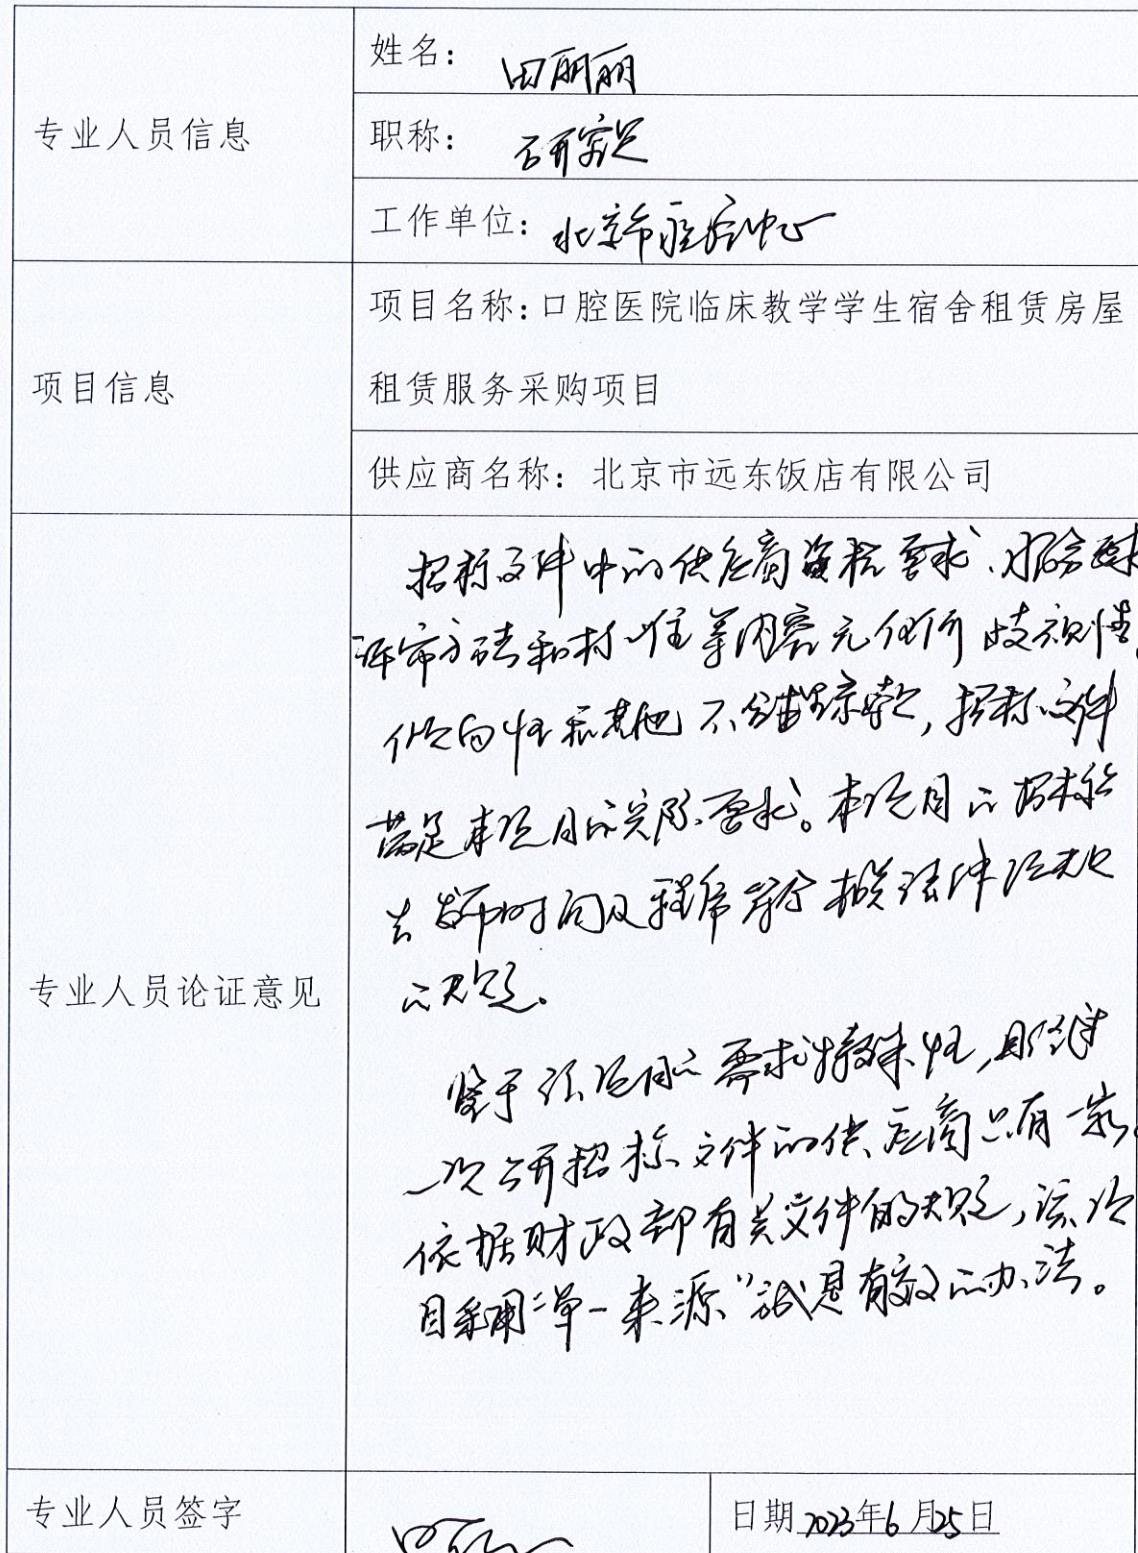 专业人员信息
姓名: 田丽丽
职称: 研究员
工作单位: 北京市疾控中心
项目信息
项目名称: 口腔医院临床教学学生宿舍租赁房屋
租赁服务采购项目
供应商名称: 北京市远东饭店有限公司
专业人员论证意见
招标文件中的供应商资格要求、服务要求
评审方法和标准等内容无任何歧视性、
倾向性和其他不合理条款,招标文件
满足本项目的实际要求。本项目的招标公
告发布时间及程序符合相关法律法规
的规定。
鉴于该项目的需求特殊性,且经
一次公开招标文件的供应商只有一家,
依据财政部有关文件的规定,该项
目采用“单一来源”式是有效的办法。
专业人员签字
田丽丽
日期 2023年6月25日